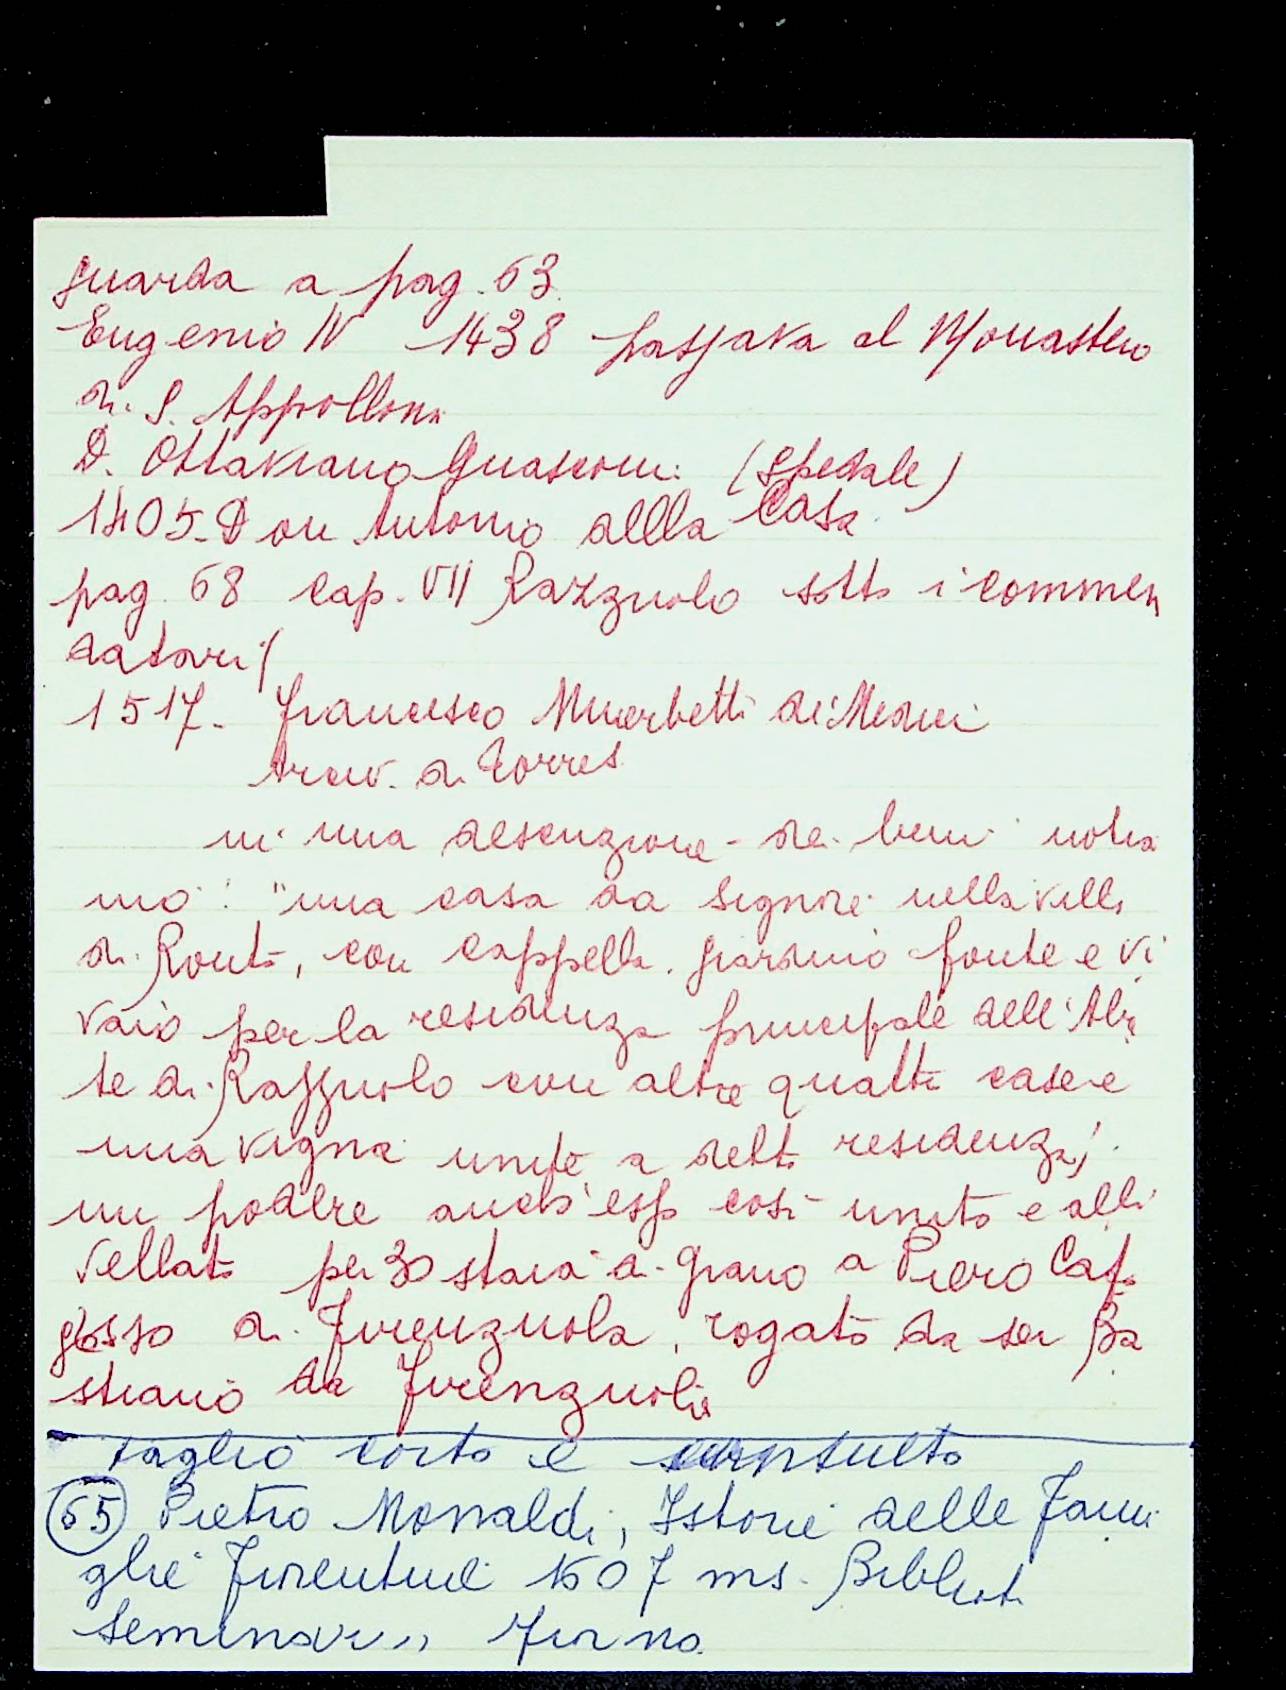 guarda a pag. 63
Eugenio IV 1438 passava al Monastero
di S. Appollonia
D. Ottaviano Guasconi (Spedale)
1405. Don Antonio allla Casa
pag. 68 cap. VII Razzuolo sotto i commen
datori
1517. Francesco Minerbetti di Medici
Arciv. di Torres
in una descrizione dei beni notia
mo: "una casa da signore nella villa
di Ronta, con cappella, giardino fonte e vi
vaio per la residenza principale dell'Aba
te di Razzuolo con altre quattro case e
una vigna unite a detta residenza,
un podere anch'esso così unito e alli
vellato per 30 staia di grano a Piero Caf
di Firenzuola, rogato da ser Ba
stiano da Firenzuola
taglio corto e consulto
65 Pietro Monaldi, Istorie delle Fami
glie Fiorentine 1607 ms. Bibliot.